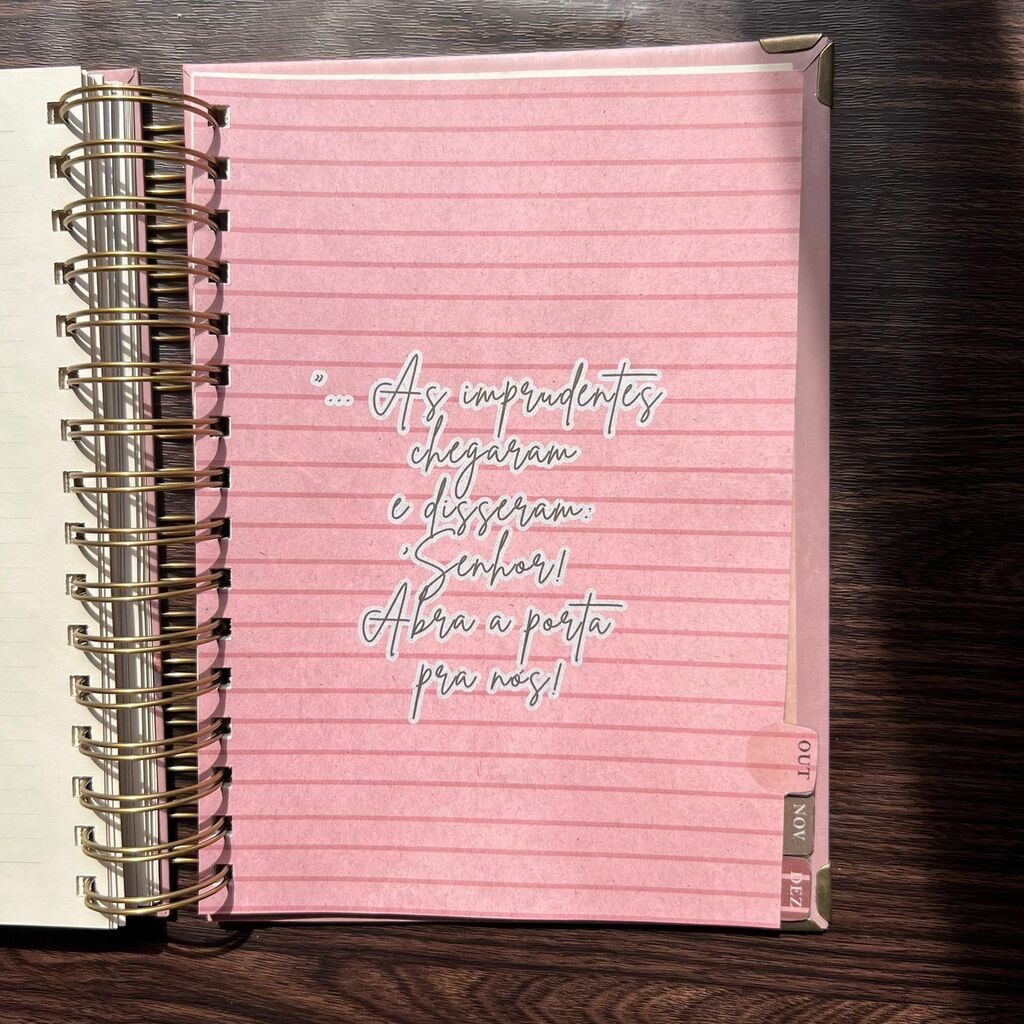 "... As imprudentes
chegaram
e disseram:
'Senhor!
Abra a porta
pra nós!
OUT
NOV
DEZ